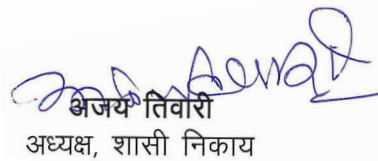 अजय तिवारी
अध्यक्ष, शासी निकाय